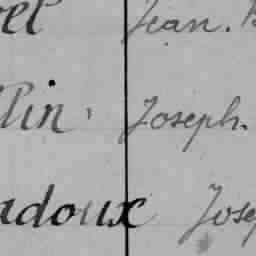 el Jean.
lin, Joseph.
adoux Jose